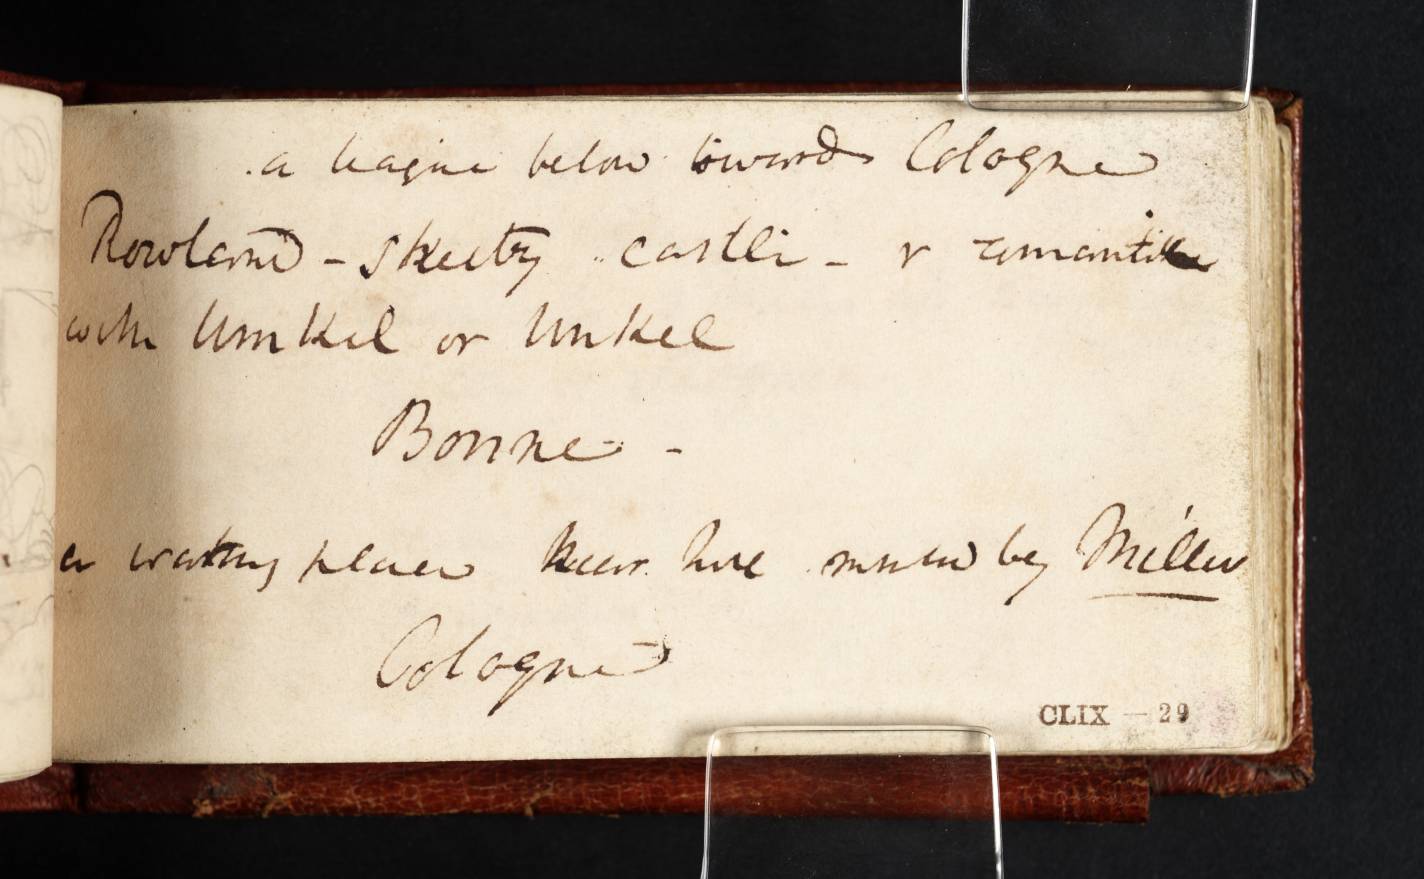 a league below towards Cologne
Rowland - castle - & romantic
with Umkel or Unkel
Bonne -
a watering place near here by Miller
Cologne
CLIX — 29